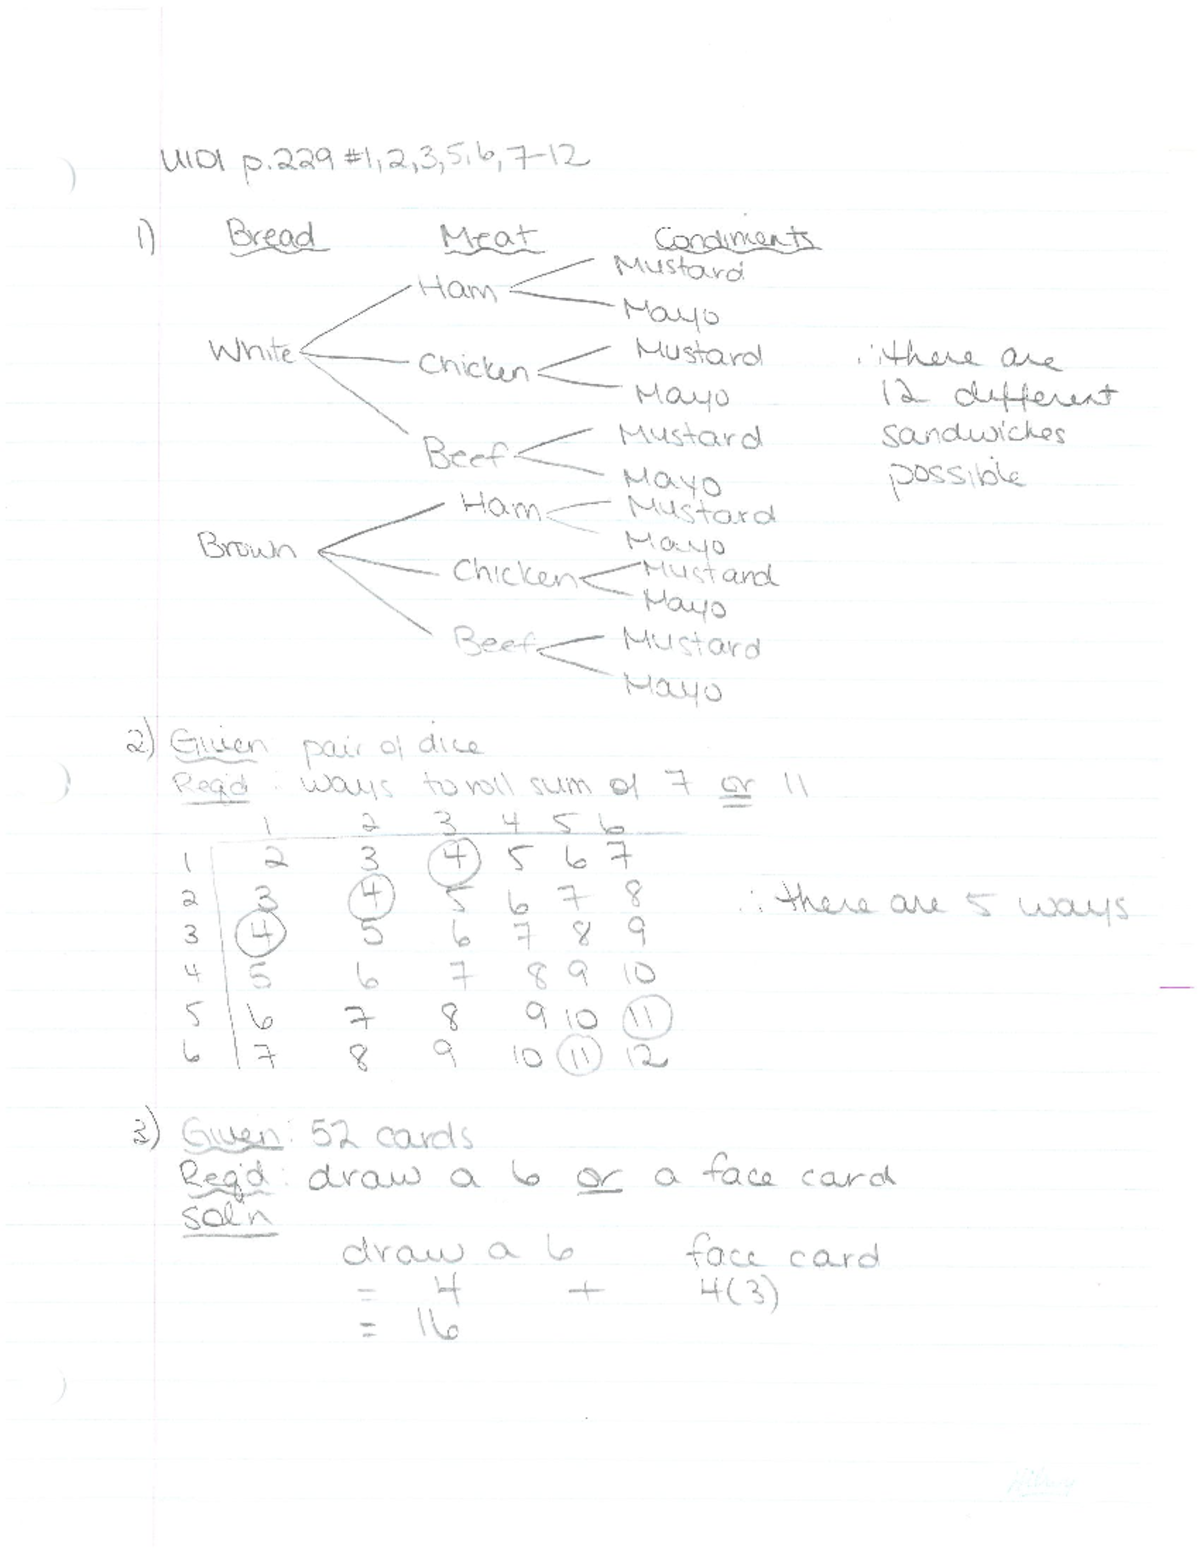 U1D1 p.229 #1,2,3,5,6,7-12
1) Bread Meat Condiments
Mustard
Ham
Mayo
White Chicken Mustard
Mayo
Beef Mustard
Mayo
∴ there are
12 different
sandwiches
possible
Ham Mustard
Brown Mayo
Chicken Mustard
Mayo
Beef Mustard
Mayo
2) Given: pair of dice
Req'd: ways to roll sum of 7 or 11
1 2 3 4 5 6
1 2 3 4 5 6 7
2 3 4 5 6 7 8
3 4 5 6 7 8 9
4 5 6 7 8 9 10
5 6 7 8 9 10 11
6 7 8 9 10 11 12
∴ there are 5 ways
3) Given: 52 cards
Req'd: draw a 6 or a face card
sol'n
draw a 6 face card
= 4 + 4(3)
= 16